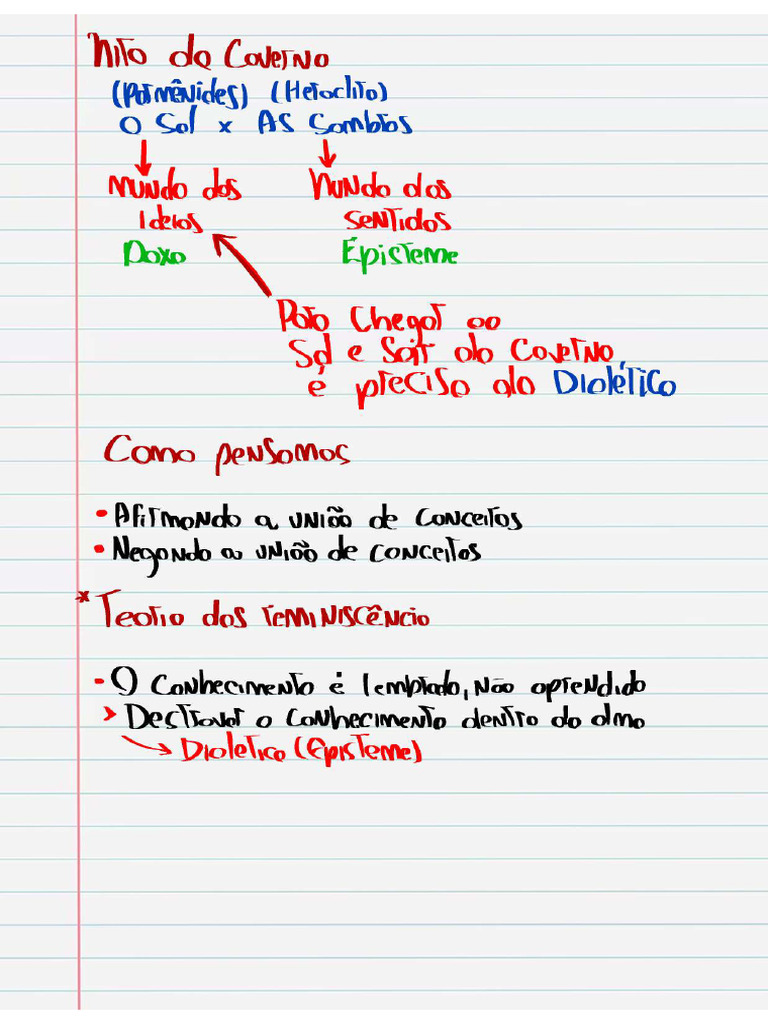 Mito da Caverna
(Parmênides) (Heraclito)
O Sol x As Sombras
Mundo das Mundo dos
Ideias sentidos
Doxa Episteme
Para chegar ao
Sol e Sair da Caverna,
é preciso da Dialética
Como pensamos
• Afirmando a união de conceitos
• Negando a união de conceitos
* Teoria das reminiscência
- O conhecimento é lembrado, não aprendido
> Destravar o conhecimento dentro da alma
→ Dialética (Episteme)